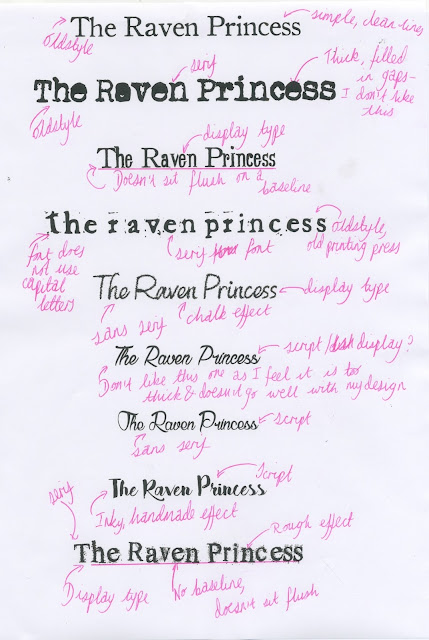 The Raven Princess
simple, clean lines
oldstyle
serif
Thick, filled
in gaps -
I don't like
this
The Raven Princess
oldstyle
display type
The Raven Princess
Doesn't sit flush on a
baseline
the raven princess
oldstyle,
old printing press
font does
not use
capital
letters
serif font
The Raven Princess
display type
sans serif
chalk effect
The Raven Princess
script / display?
Don't like this one as I feel it is too
thick & doesn't go well with my design
The Raven Princess
script
sans serif
Script
The Raven Princess
serif
Inky, handmade effect
Rough effect
The Raven Princess
Display type
No baseline,
doesn't sit flush